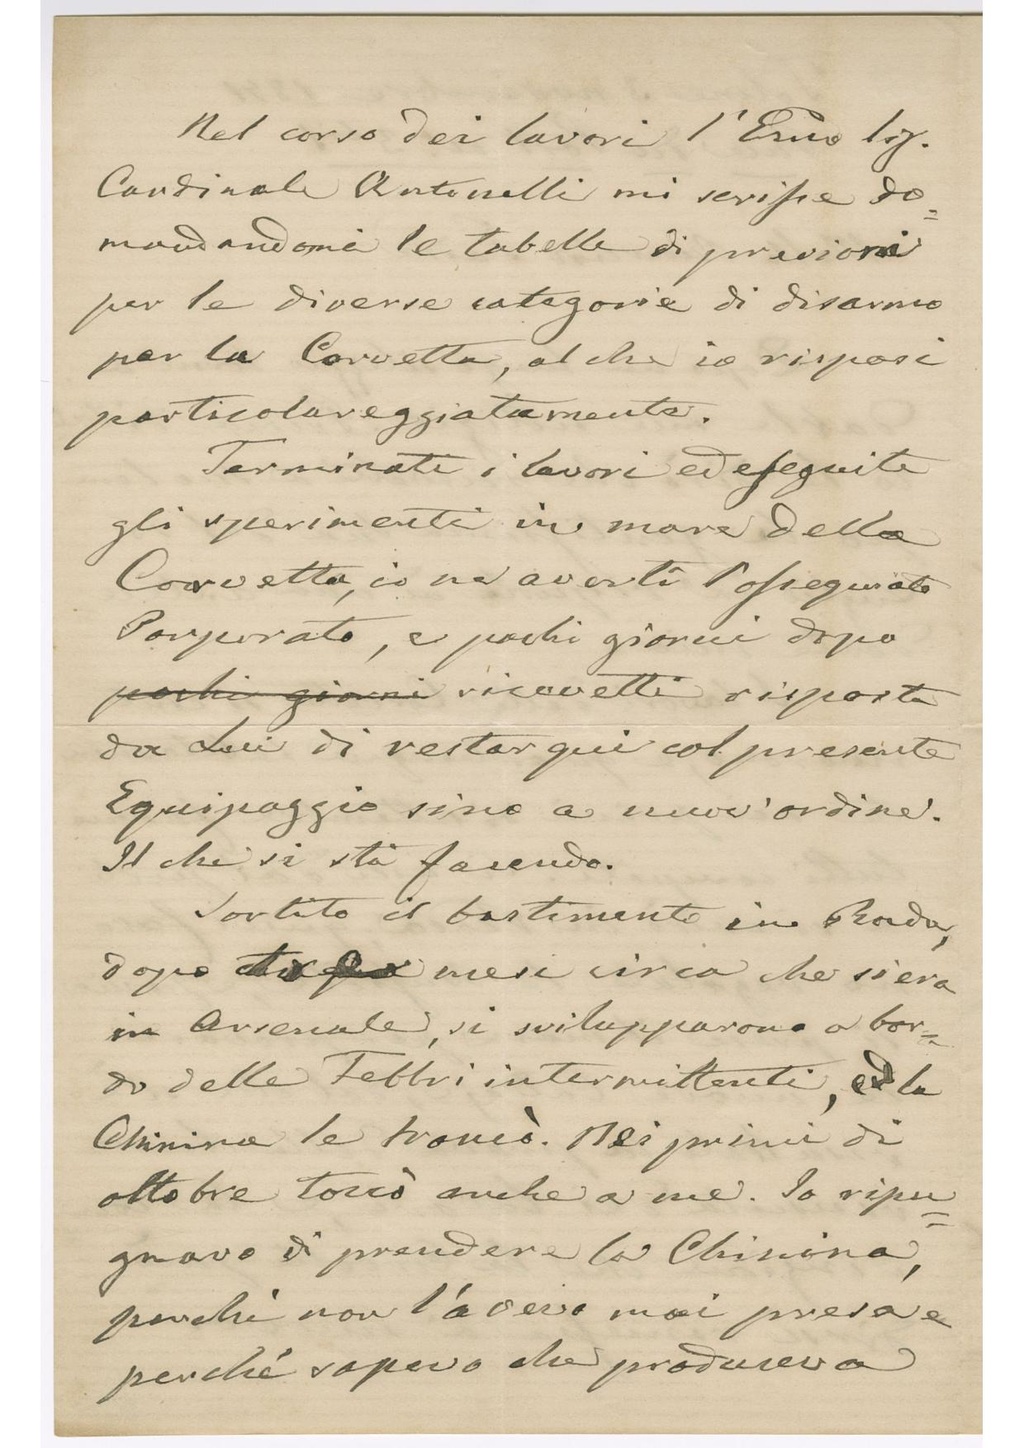 Nel corso dei lavori l'Emo Sig.
Cardinale Antonelli mi scrisse do=
mandandomi le tabelle di previsioni
per le diverse categorie di disarmo
per la Corvetta, al che io risposi
particolareggiatamente.
Terminati i lavori ed eseguite
gli sperimenti in mare della
Corvetta, io ne avertì l'ossequiato
Porporato, e pochi giorni dopo
pochi giorni ricevetti risposta
da Lui di restar qui col presente
Equipaggio sino a nuov'ordine.
Il che si stà facendo.
Sortito il bastimento in Rada,
dopo mesi circa che si era
in Arsenale, si svilupparono a bor=
do delle Febbri intermittenti, ed la
Chinina le troncò. Nei primi di
ottobre toccò anche a me. Io ripu=
gnavo di prendere la Chinina,
perchè non l'avevo mai presa e
perché sapevo che produceva